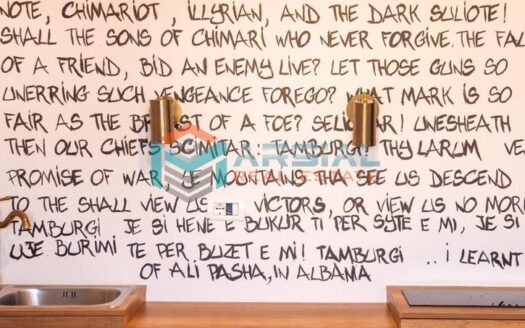 NOTE, CHIMARIOT, ILLYRIAN, AND THE DARK SULIOTE!
SHALL THE SONS OF CHIMARI WHO NEVER FORGIVE THE FAU
OF A FRIEND, BID AN ENEMY LIVE? LET THOSE GUNS SO
UNERRING SUCH VENGEANCE FOREGO? WHAT MARK IS SO
FAIR AS THE BR ST OF A FOE? SELI AR! UNESHEATH
THEN OUR CHIEFS SCIMITAR: TAMBURGI! THY LARUM VE
PROMISE OF WAR, YE MOUNTAINS THA SEE US DESCEND
TO THE SHALL VIEW US VICTORS, OR VIEW US NO MOR
TAMBURGI JE SI HENE E BUKUR TI PER SYTE E MI, JE SI
UJE BURIMI TE PER BUZET E MI! TAMBURGI .. I LEARNT
OF ALI PASHA, IN ALBANIA
ARSIAL
REAL ESTATE